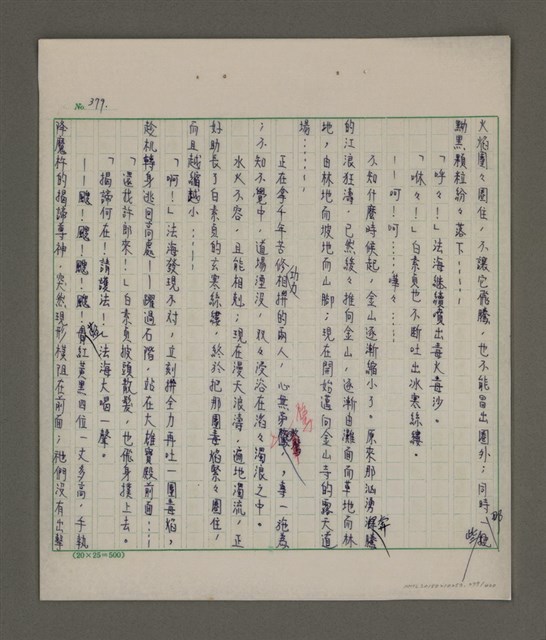 No. 379.
火焰團々圍住，不讓它飛騰，也不能冒出圈外；同時那些
黝黑顆粒紛々落下……
「呼々！」法海繼續噴出毒火毒沙。
「咻々！」白素貞也不斷吐出冰寒絲縷。
——呵！呵……嘩々……
不知什麼時候起，金山逐漸縮小了。原來那洶湧
的江浪狂濤，已然緩々推向金山，逐漸由灘面而草地向林
地，由林地而坡地而山腳；現在開始邁向金山寺的露天道
場……
正在拿千年苦修功力相拼的兩人，心無旁騖，專一施為
；不知不覺中，道場湮沒，雙々浸浴在滔々濁浪之中。
水火不容，且能相剋；現在漫天浪濤，遍地濁流，正
好助長了白素貞的玄寒絲縷，終於把那團毒焰緊々圈住，
而且越縮越小……
「啊！」法海發現不對，立刻拼全力再吐一團毒焰，
趁机轉身逃回高處——躍過石階，站在大雄寶殿前面……
「還我許郎來！」白素貞披頭散髮，也飛身撲上去。
「揭諦何在！請護法！」法海大喝一聲。
——颼！颼！颼！颼！紅黃黑四位一丈多高，手執
降魔杵的揭諦尊神，突然現形橫阻在前面；祂們沒有出擊
(20×25=500)